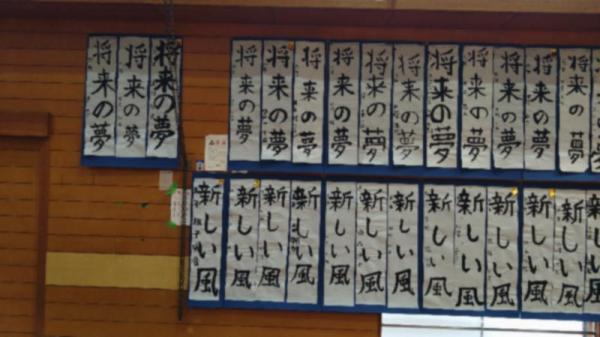 将来の夢
将来の夢
将来の夢
将来の夢
将来の夢
将来の夢
将来の夢
将来の夢
将来の夢
将来の夢
将来の夢
将来の夢
将来の夢
将来の夢
新しい風
新しい風
新しい風
新しい風
新しい風
新しい風
新しい風
新しい風
新しい風
新しい風
新しい風
新しい風
新しい風